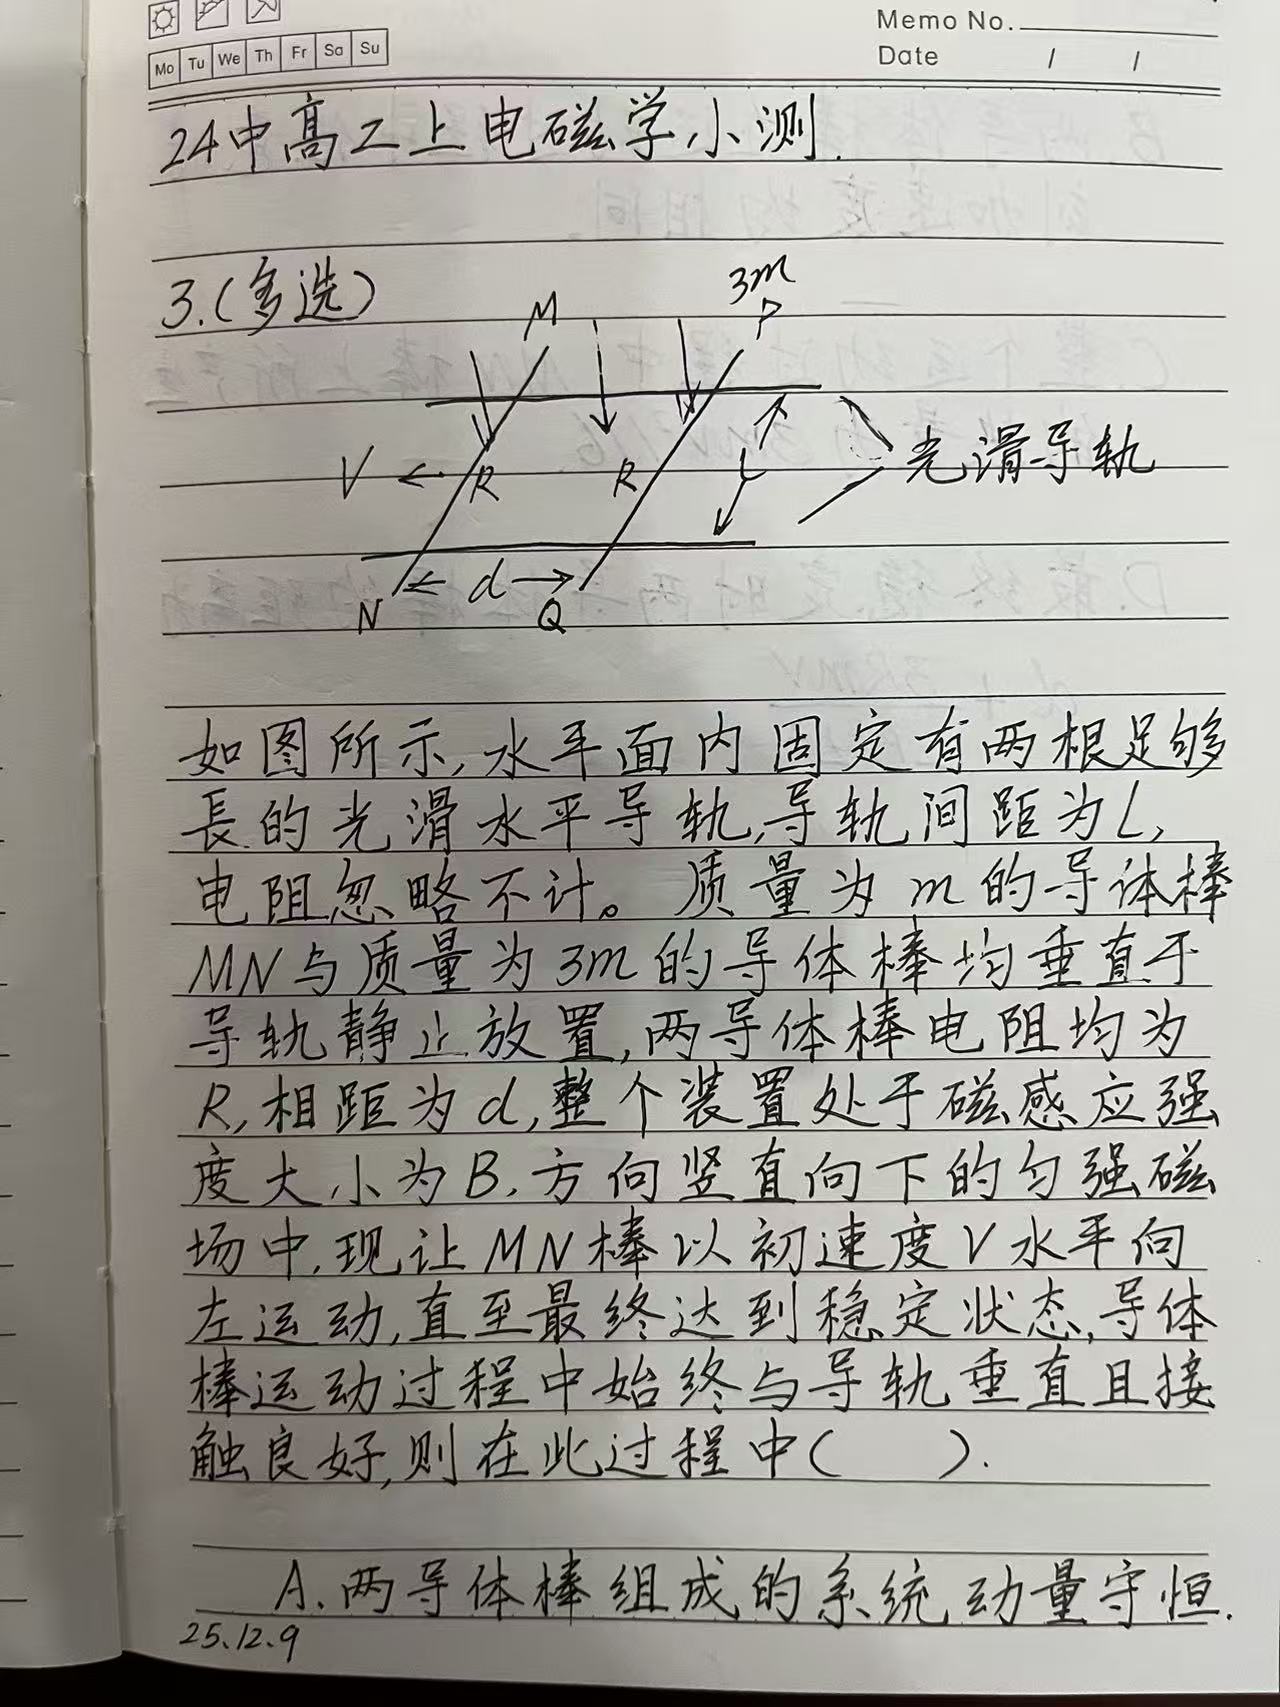 Memo No.
Mo Tu We Th Fr Sa Su
Date / /
24中高二上电磁学小测.
3.(多选)
3m
M
P
V
R
R
L
光滑导轨
d
N
Q
如图所示,水平面内固定有两根足够
長的光滑水平导轨,导轨间距为L,
电阻忽略不计。质量为m的导体棒
MN与质量为3m的导体棒均垂直于
导轨静止放置,两导体棒电阻均为
R,相距为d,整个装置处于磁感应强
度大小为B,方向竖直向下的匀强磁
场中,现让MN棒以初速度V水平向
左运动,直至最终达到稳定状态,导体
棒运动过程中始终与导轨垂直且接
触良好,则在此过程中( ).
A.两导体棒组成的系统动量守恒.
25.12.9